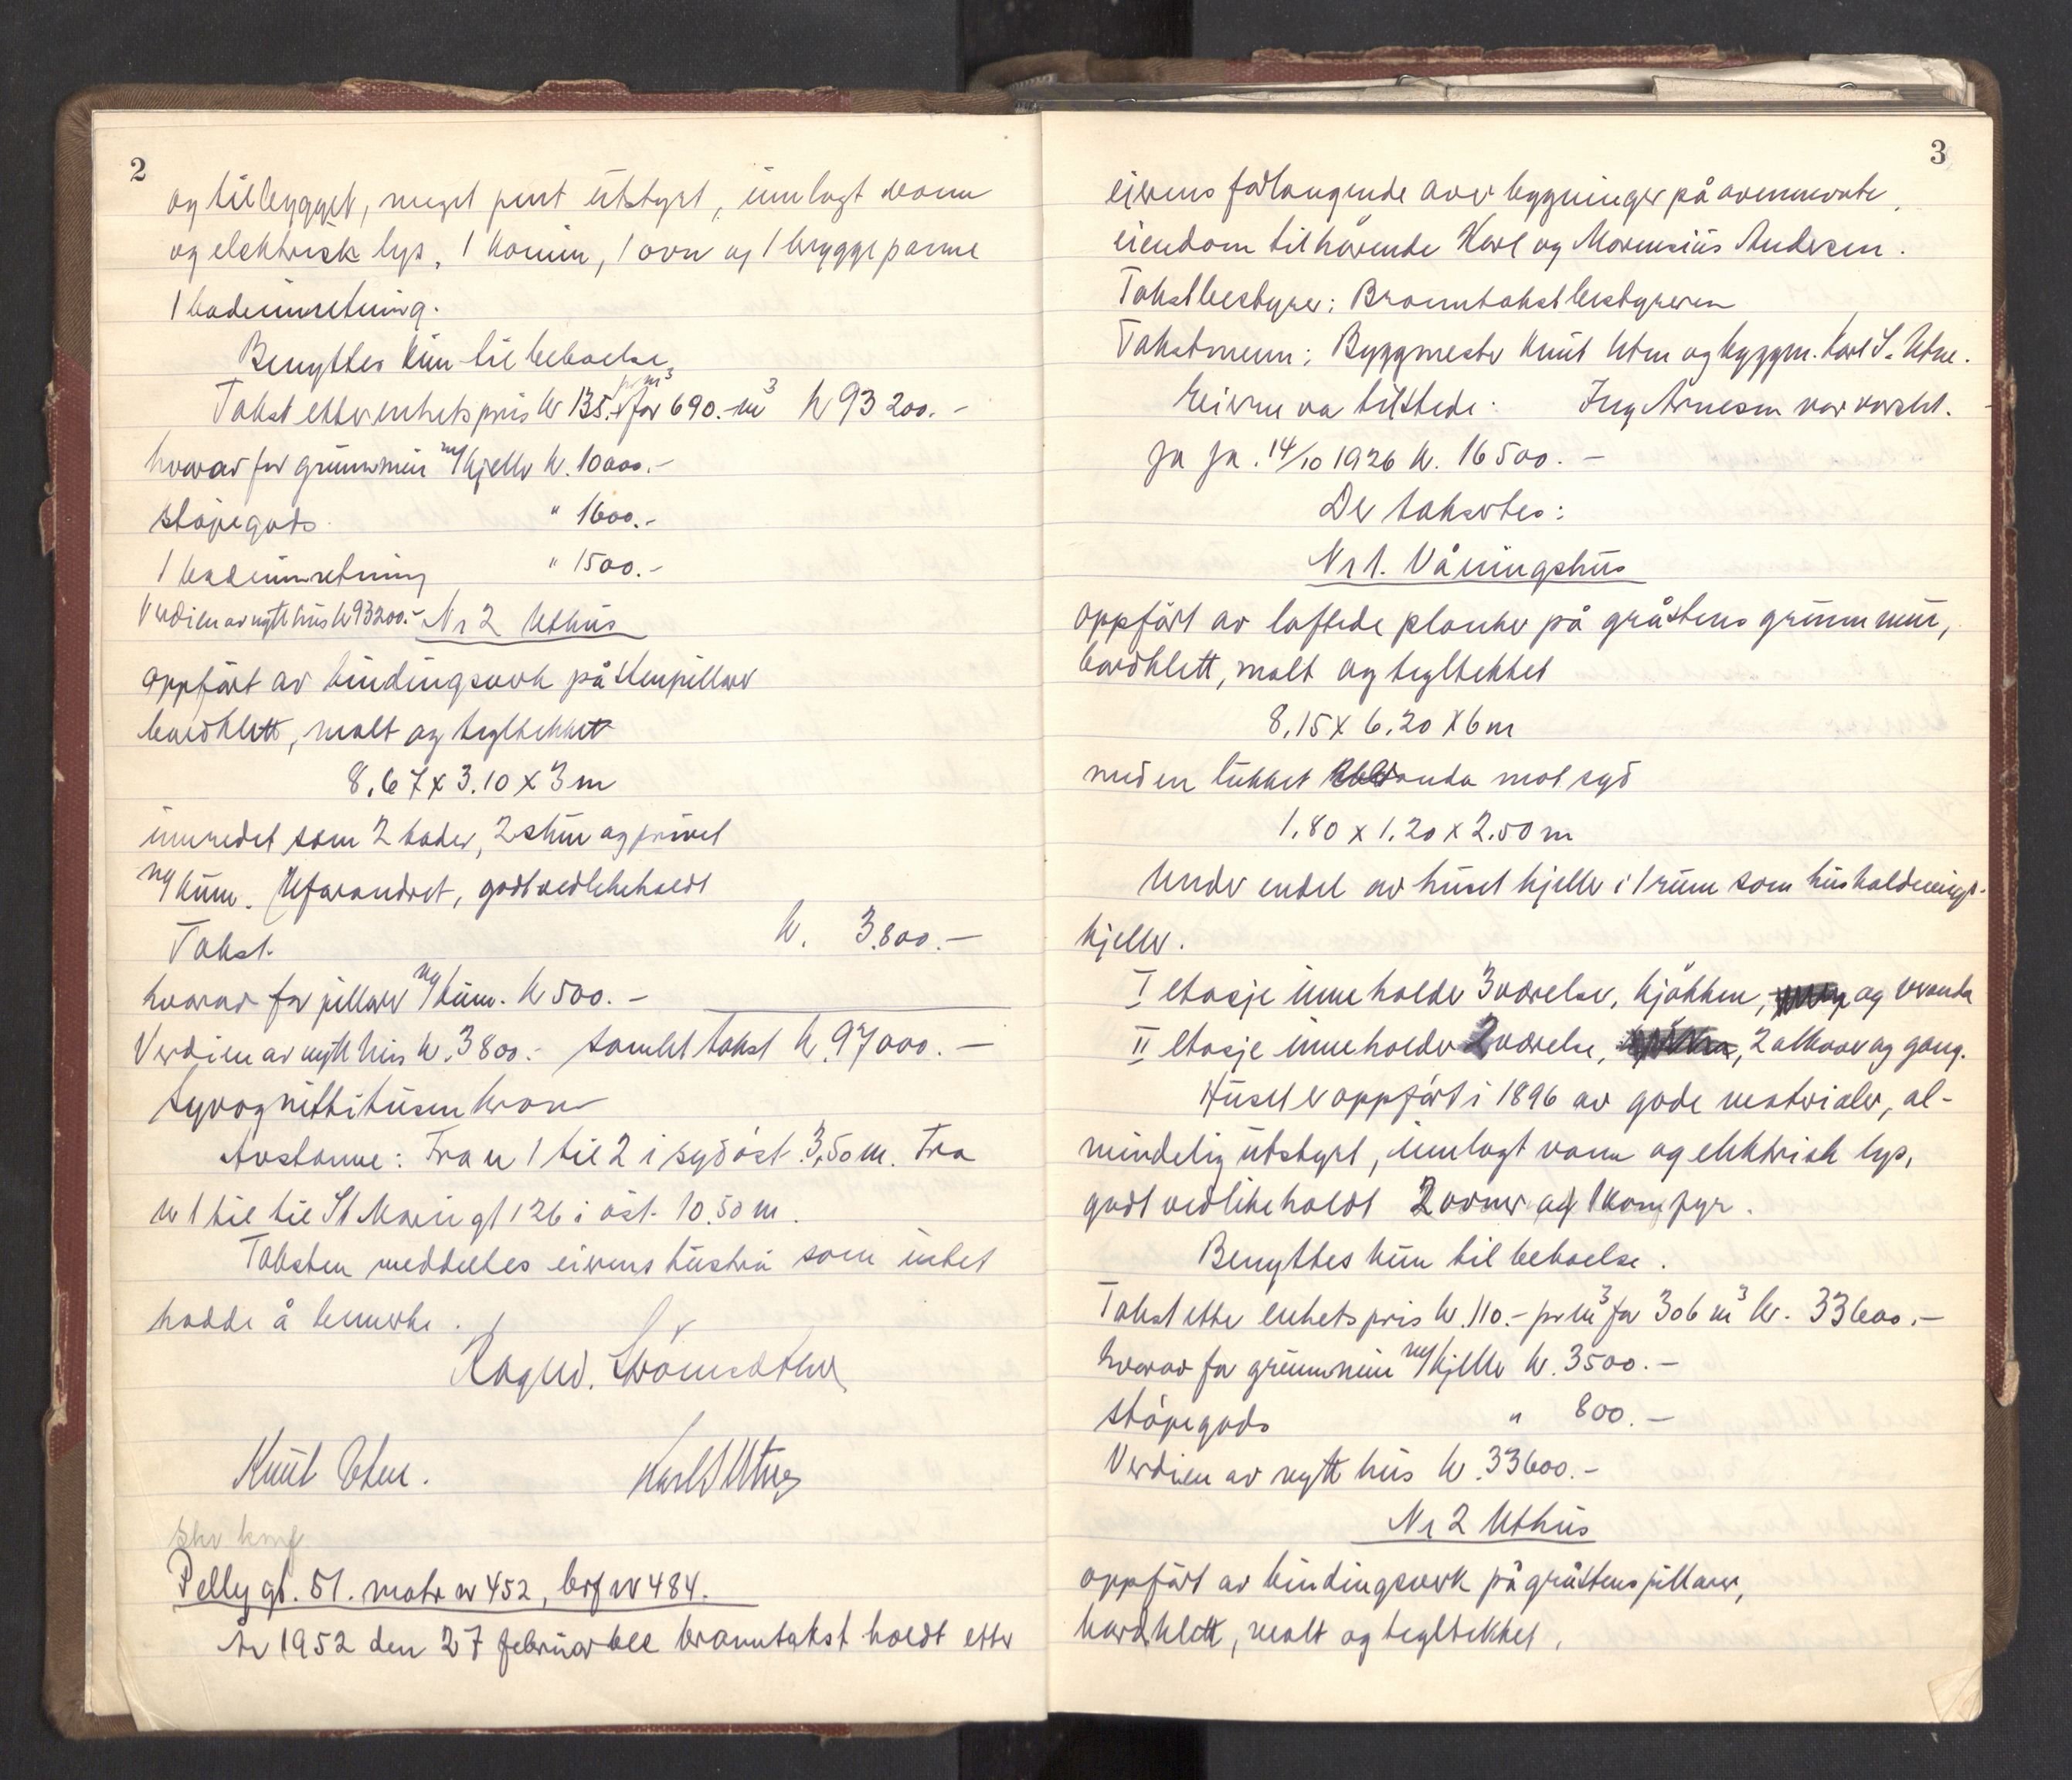 2
og tilbygget, meget pent utstyrt, innlagt vann
og elektrisk lys, 1 kamin, 1 ovn og 1 bryggepanne
1 badeinnretning.
Benyttes kun til beboelse.
Takst etter enhetspris kr 135.- pr m³ for 690.- m³ kr 93 200.-
hvorav for grunnmur m/kjeller kr. 10000.-
støpegods " 1600.-
1 badeinnretning " 1500.-
Verdien av nytt hus kr 93200.- Nr 2 Uthus
oppført av bindingsverk på stenpillarer
bordklett, malt og tegltekket
8.67 x 3.10 x 3 m
innredet som 2 boder, 2 skur og privet
m/kum. Uforandret, godt vedlikeholdt
Takst. kr. 3.800.-
hvorav for pillarer m/kum. kr 500.-
Verdien av nytt hus kr. 3800.- samlet takst kr. 97000.-
syvognittitusen kroner
Avstanne: Fra nr 1 til 2 i sydøst. 3,50 m. Fra
nr 1 til til St Mariegt 126 i øst. 10.50 m.
Taksten meddeltes eierens hustru som intet
hadde å bemerke.
Knut Utne. Karl S Utne
skr krmf
Pellygt. 51. matr nr 452, brf nr 484.
År 1952 den 27 februar ble branntakst holdt etter
3
eierens forlangende over bygninger på ovennevnte
eiendom tilhørende Karl og Marensius Andersen.
Takstbestyrer: Branntakstbestyreren
Takstmenn: Byggmester Knut Utne og byggm. Karl S. Utne.
Eieren va tilstede. Ing Arnesen var varslet.
Ja ja. 14/10 1926 kr. 16500.-
De taksertes:
Nr 1. Våningshus
oppført av laftede planker på gråstens grunnmur,
bordklett, malt og tegltekket
8.15 x 6.20 x 6 m
med en lukket veranda mot syd
1.80 x 1.20 x 2.50 m
Under endel av huset kjeller i 1 rum som husholdnings-
kjeller.
I etasje inneholder 3 værelser, kjøkken, og veranda
II etasje inneholder 2 værelse, 2 alkover og gang.
Huset er oppført i 1896 av gode materialer, al-
mindelig utstyrt, innlagt vann og elektrisk lys,
godt vedlikeholdt 2 ovner og 1 komfyr.
Benyttes kun til beboelse.
Takst etter enhetspris kr. 110.- pr m³ for 306 m³ kr. 33600.-
hvorav for grunnmur m/kjeller kr. 3500.-
støpegods " 800.-
Verdien av nytt hus kr. 33600.-
Nr 2 Uthus
oppført av bindingsverk på gråstens pillarer,
bordklett, malt og tegltekket,